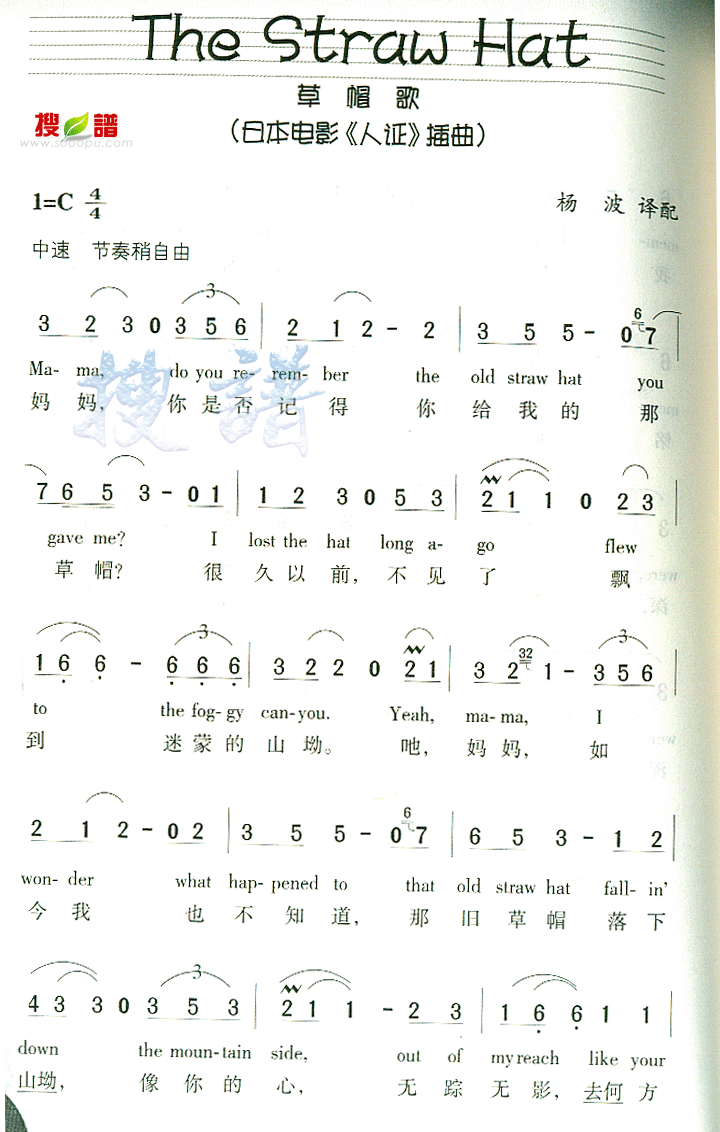 The Straw Hat
草 帽 歌
(日本电影《人证》插曲)
搜 譜
www.sooopu.com
1=C 4/4
杨 波 译配
中速 节奏稍自由
3 2 3 0 3 5 6 | 2 1 2 - 2 | 3 5 5 - 0 7
Ma- ma, do you re- mem- ber the old straw hat you
妈 妈, 你 是 否 记 得 你 给 我 的 那
7 6 5 3 - 0 1 | 1 2 3 0 5 3 | 2 1 1 0 2 3
gave me? I lost the hat long a- go flew
草 帽? 很 久 以 前, 不 见 了 飘
1 6 6 - 6 6 6 | 3 2 2 0 2 1 | 3 2 1 - 3 5 6
to the fog- gy can-you. Yeah, ma-ma, I
到 迷 蒙 的 山 坳。 吔, 妈 妈, 如
2 1 2 - 0 2 | 3 5 5 - 0 7 | 6 5 3 - 1 2
won- der what hap- pened to that old straw hat fall- in'
今 我 也 不 知 道, 那 旧 草 帽 落 下
4 3 3 0 3 5 3 | 2 1 1 - 2 3 | 1 6 6 1 1
down the moun- tain side, out of my reach like your
山 坳, 像 你 的 心, 无 踪 无 影, 去 何 方